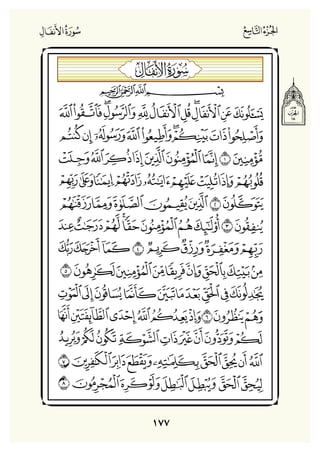 سُورَةُ الأَنفَالِ
الجُزْءُ التَّاسِعُ
سُورَةُ الأَنفَالِ
بِسْمِ اللَّهِ الرَّحْمَٰنِ الرَّحِيمِ
يَسْـَٔلُونَكَ عَنِ ٱلْأَنفَالِ ۖ قُلِ ٱلْأَنفَالُ لِلَّهِ وَٱلرَّسُولِ ۖ فَٱتَّقُوا۟ ٱللَّهَ
وَأَصْلِحُوا۟ ذَاتَ بَيْنِكُمْ ۖ وَأَطِيعُوا۟ ٱللَّهَ وَرَسُولَهُۥٓ إِن كُنتُم
مُّؤْمِنِينَ ١ إِنَّمَا ٱلْمُؤْمِنُونَ ٱلَّذِينَ إِذَا ذُكِرَ ٱللَّهُ وَجِلَتْ
قُلُوبُهُمْ وَإِذَا تُلِيَتْ عَلَيْهِمْ ءَايَٰتُهُۥ زَادَتْهُمْ إِيمَٰنًا وَعَلَىٰ رَبِّهِمْ
يَتَوَكَّلُونَ ٢ ٱلَّذِينَ يُقِيمُونَ ٱلصَّلَوٰةَ وَمِمَّا رَزَقْنَٰهُمْ
يُنفِقُونَ ٣ أُو۟لَٰٓئِكَ هُمُ ٱلْمُؤْمِنُونَ حَقًّا ۚ لَّهُمْ دَرَجَٰتٌ عِندَ
رَبِّهِمْ وَمَغْفِرَةٌ وَرِزْقٌ كَرِيمٌ ٤ كَمَآ أَخْرَجَكَ رَبُّكَ
مِنۢ بَيْتِكَ بِٱلْحَقِّ وَإِنَّ فَرِيقًا مِّنَ ٱلْمُؤْمِنِينَ لَكَٰرِهُونَ ٥
يُجَٰدِلُونَكَ فِى ٱلْحَقِّ بَعْدَ مَا تَبَيَّنَ كَأَنَّمَا يُسَاقُونَ إِلَى ٱلْمَوْتِ
وَهُمْ يَنظُرُونَ ٦ وَإِذْ يَعِدُكُمُ ٱللَّهُ إِحْدَى ٱلطَّآئِفَتَيْنِ أَنَّهَا
لَكُمْ وَتَوَدُّونَ أَنَّ غَيْرَ ذَاتِ ٱلشَّوْكَةِ تَكُونُ لَكُمْ وَيُرِيدُ
ٱللَّهُ أَن يُحِقَّ ٱلْحَقَّ بِكَلِمَٰتِهِۦ وَيَقْطَعَ دَابِرَ ٱلْكَٰفِرِينَ ٧
لِيُحِقَّ ٱلْحَقَّ وَيُبْطِلَ ٱلْبَٰطِلَ وَلَوْ كَرِهَ ٱلْمُجْرِمُونَ ٨
١٧٧